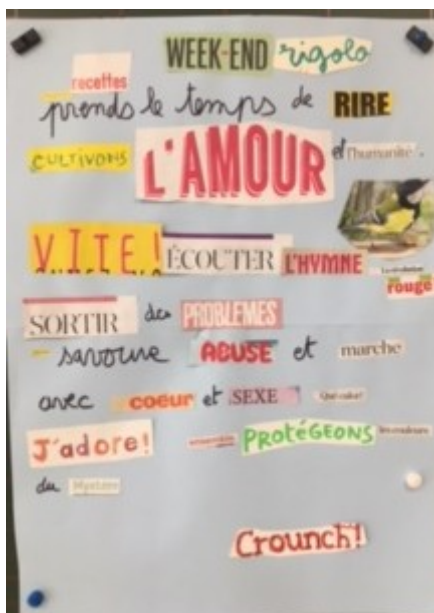 WEEK-END rigolo
recettes
prends le temps de RIRE
CULTIVONS L'AMOUR et l'humanité.
VITE! ÉCOUTER L'HYMNE
rouge
SORTIR des PROBLEMES
savoure ABUSE et marche
avec coeur et SEXE
J'adore! ensemble PROTÉGEONS les couleurs
du Mystère
Crounch!